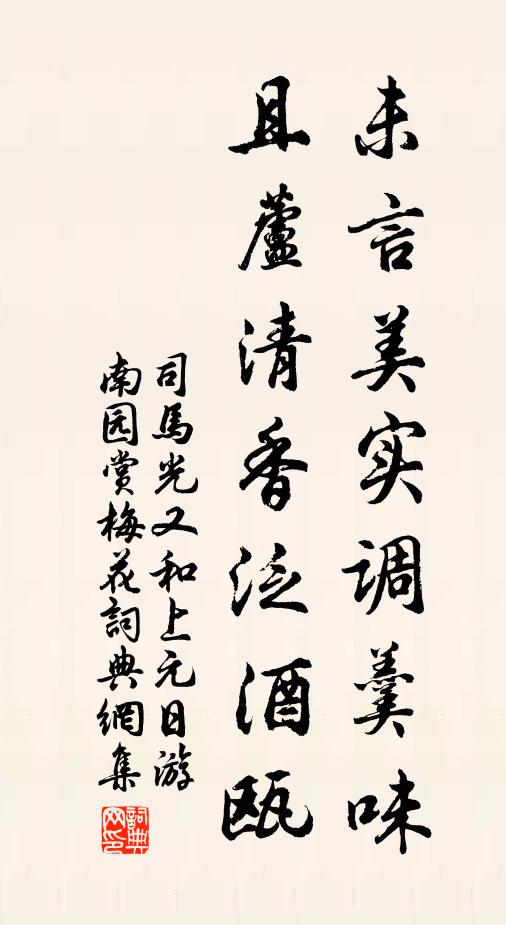 未言美实调羹味
且蘆清香泛酒瓯
司馬光又和上元日游
南园賞梅花詞典網集
詞典网印